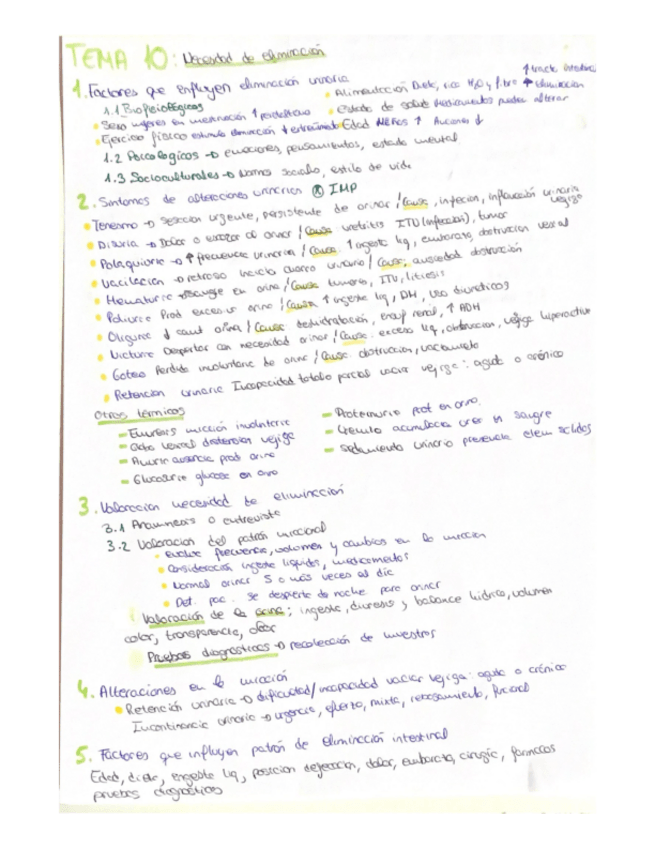 TEMA 10: Necesidad de eliminación
1. Factores que influyen eliminación urinaria
↑ tracto intestinal
1.1 Biofisiológicos
Alimentación Dieta, rica H₂O y fibra ↑ eliminación
Sexo mujeres en menstruación ↑ peristaltismo
Estado de salud Medicamentos pueden alterar
Ejercicio físico estimula eliminación ↓ estreñimiento
Edad Niños ↑ Ancianos ↓
1.2 Psicológicos → emociones, pensamientos, estado mental
1.3 Socioculturales → Normas sociales, estilo de vida
2. Síntomas de alteraciones urinarias IMP
Tenesmo → Sensación urgente, persistente de orinar / Causa, infección, inflamación urinaria vejiga
Disuria → Dolor o escozor al orinar / Causa uretritis ITU (infección), tumor
Polaquiuria → ↑ frecuencia urinaria / Causa: ↑ ingesta liq, embarazo, distensión vesical
Vacilación → retraso inicio chorro urinario / Causa; ansiedad obstrucción
Hematuria sangre en orina / Causa tumores, ITU, litiasis
Poliuria Prod excesiva orina / Causa ↑ ingesta liq, DM, uso diuréticos
Oliguria ↓ cant orina / Causa: deshidratación, renal, ↑ ADH
Nicturia Despertar con necesidad orinar / Causa: exceso liq, obstrucción, vejiga hiperactiva
Goteo Perdida involuntaria de orina / Causa: obstrucción, vaciamiento
Retención urinaria Incapacidad total o parcial vaciar vejiga: aguda o crónica
Otros términos
Enuresis micción involuntaria
Globo vesical distensión vejiga
Anuria ausencia prod orina
Glucosuria glucosa en orina
Proteinuria prot en orina
Uremia acumulación urea en sangre
Sedimento urinario presencia elem solidos
3. Valoración necesidad de eliminación
3.1 Anamnesis o entrevista
3.2 Valoración del patrón miccional
Evaluar frecuencia, volumen y cambios en la micción
Consideración ingesta líquidos, medicamentos
Normal orinar 5 o más veces al día
Det. pac. se despierta de noche para orinar
Valoración de la orina; ingesta, diuresis y balance hídrico, volumen
color, transparencia, olor
Pruebas diagnósticas → recolección de muestras
4. Alteraciones en la micción
Retención urinaria → dificultad/incapacidad vaciar vejiga: aguda o crónica
Incontinencia urinaria → urgencia, esfuerzo, mixta, rebosamiento, funcional
5. Factores que influyen patrón de eliminación intestinal
Edad, dieta, ingesta liq, posición defecación, dolor, embarazo, cirugía, fármacos
pruebas diagnósticas